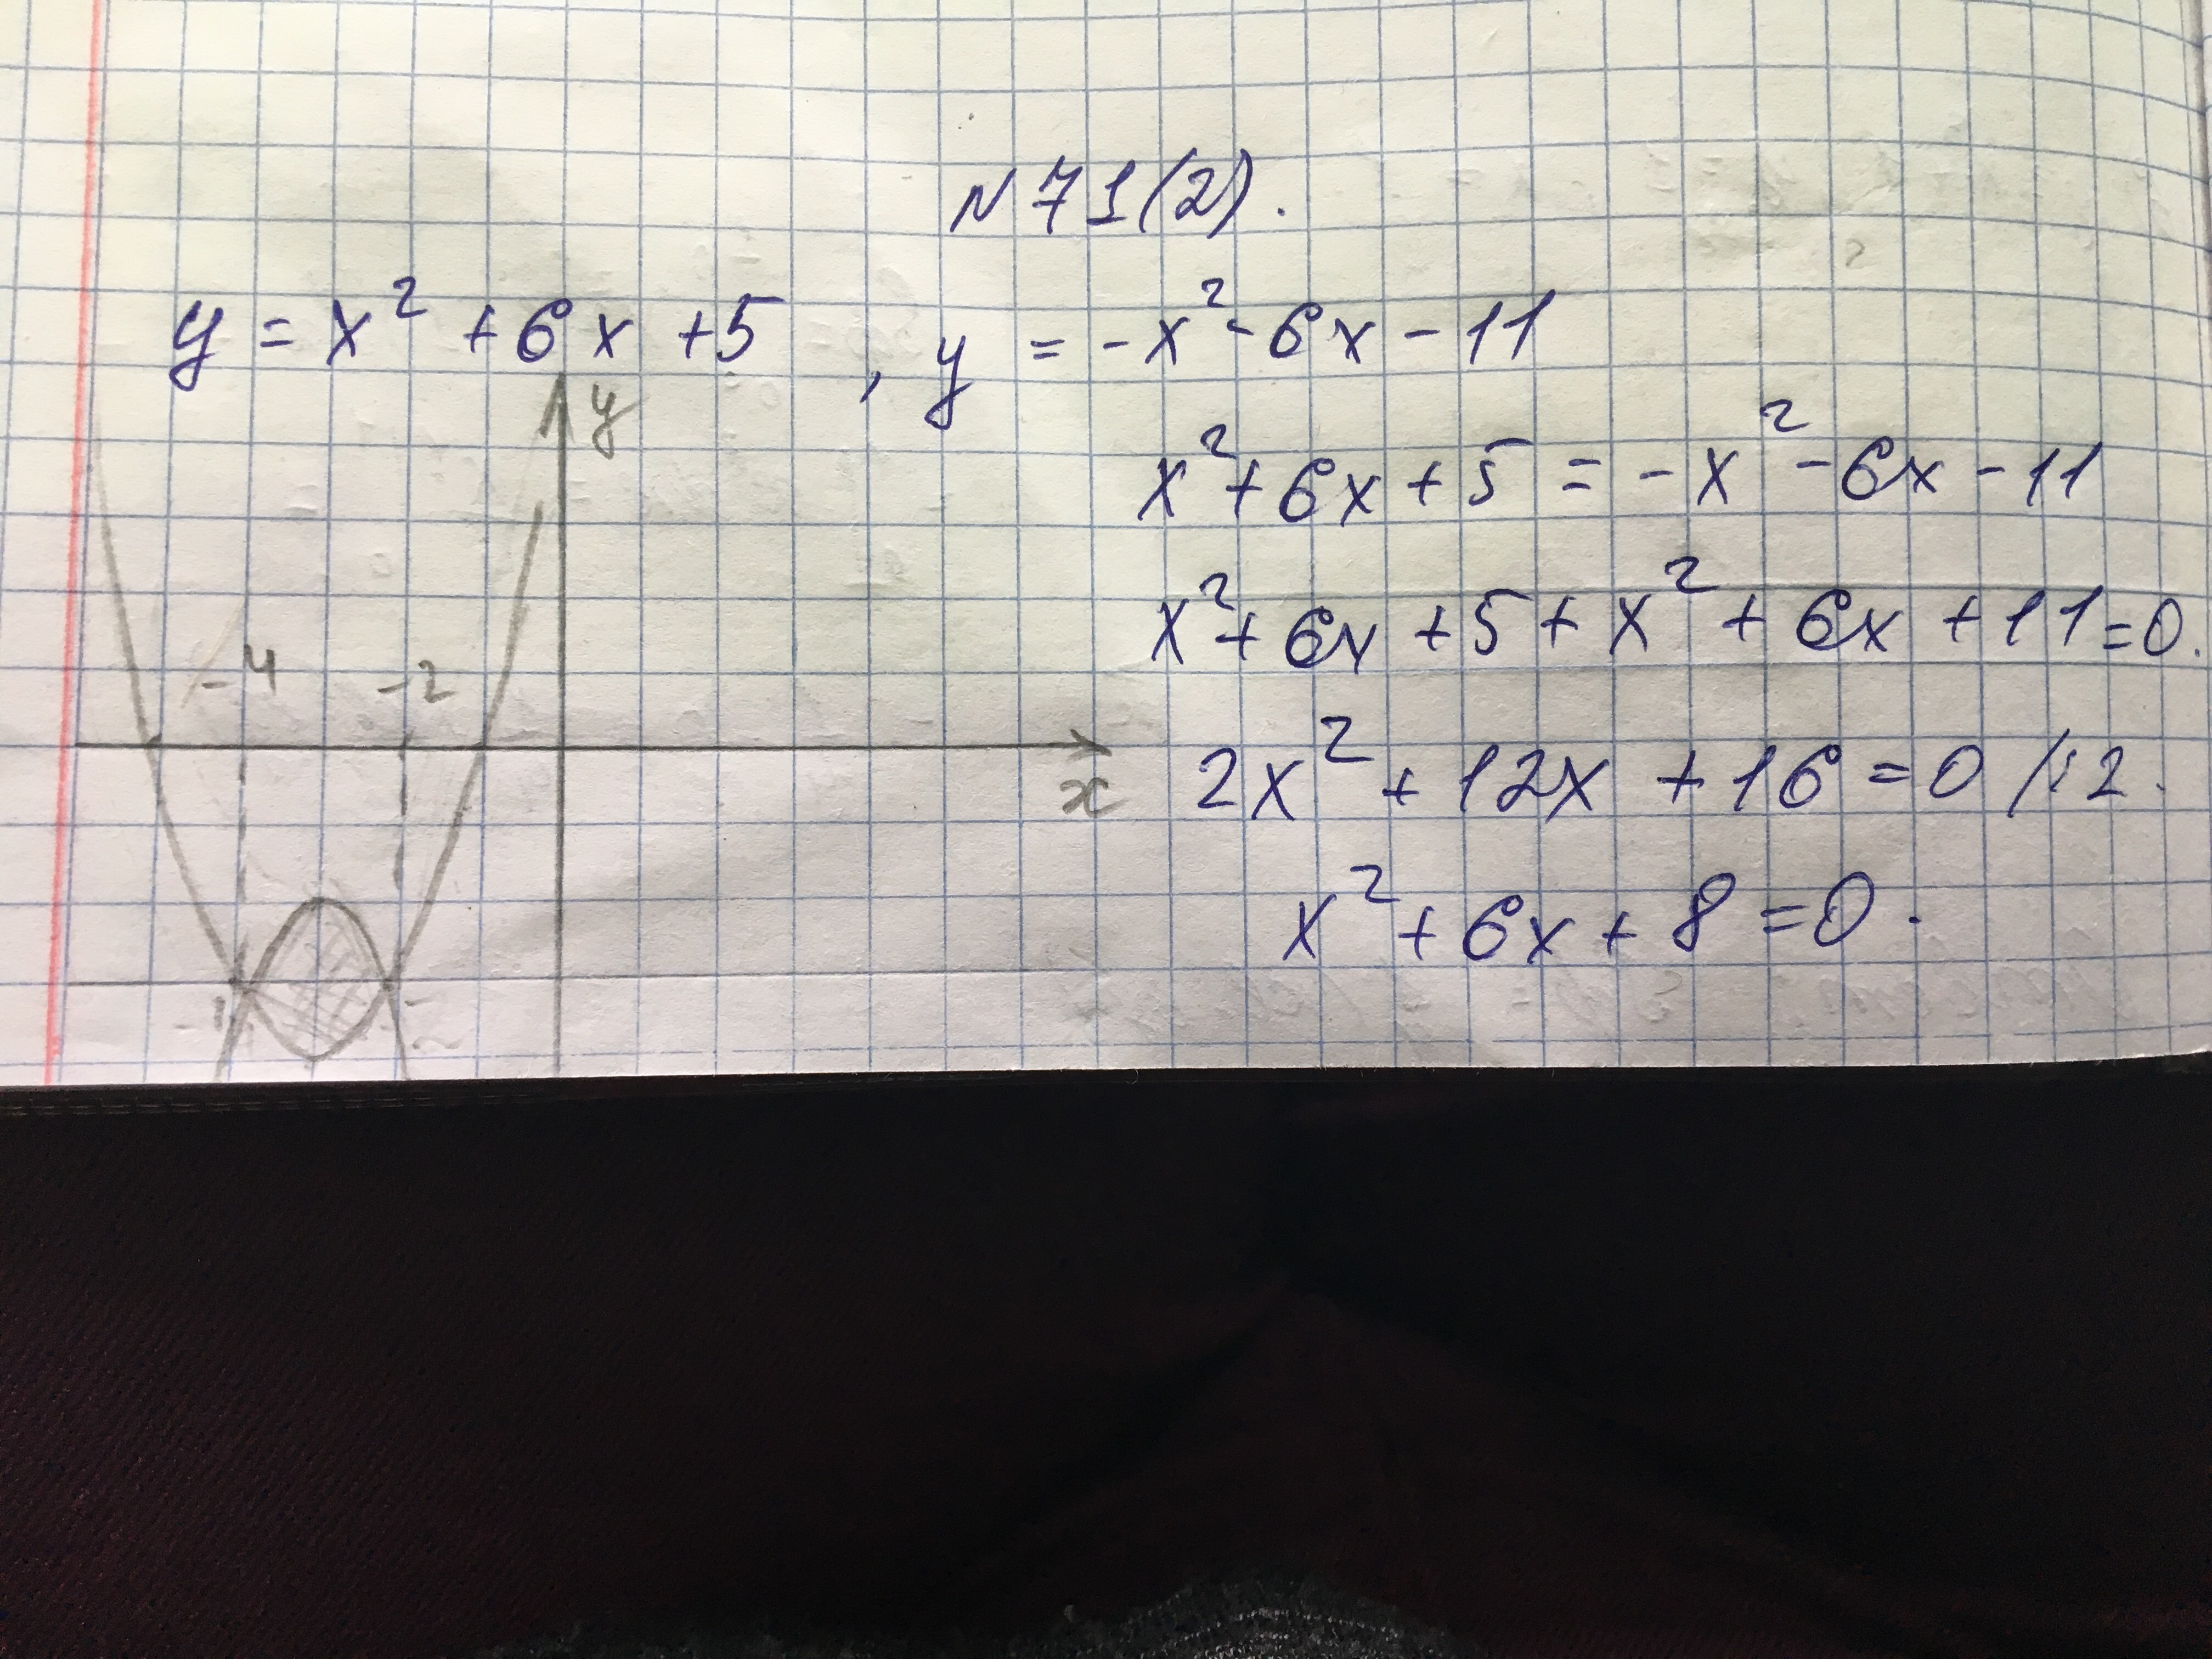 N 71(2).
y = x² + 6x + 5, y = -x² - 6x - 11
y
x² + 6x + 5 = -x² - 6x - 11
x² + 6x + 5 + x² + 6x + 11 = 0.
-4 -2
x
2x² + 12x + 16 = 0 /:2.
x² + 6x + 8 = 0.